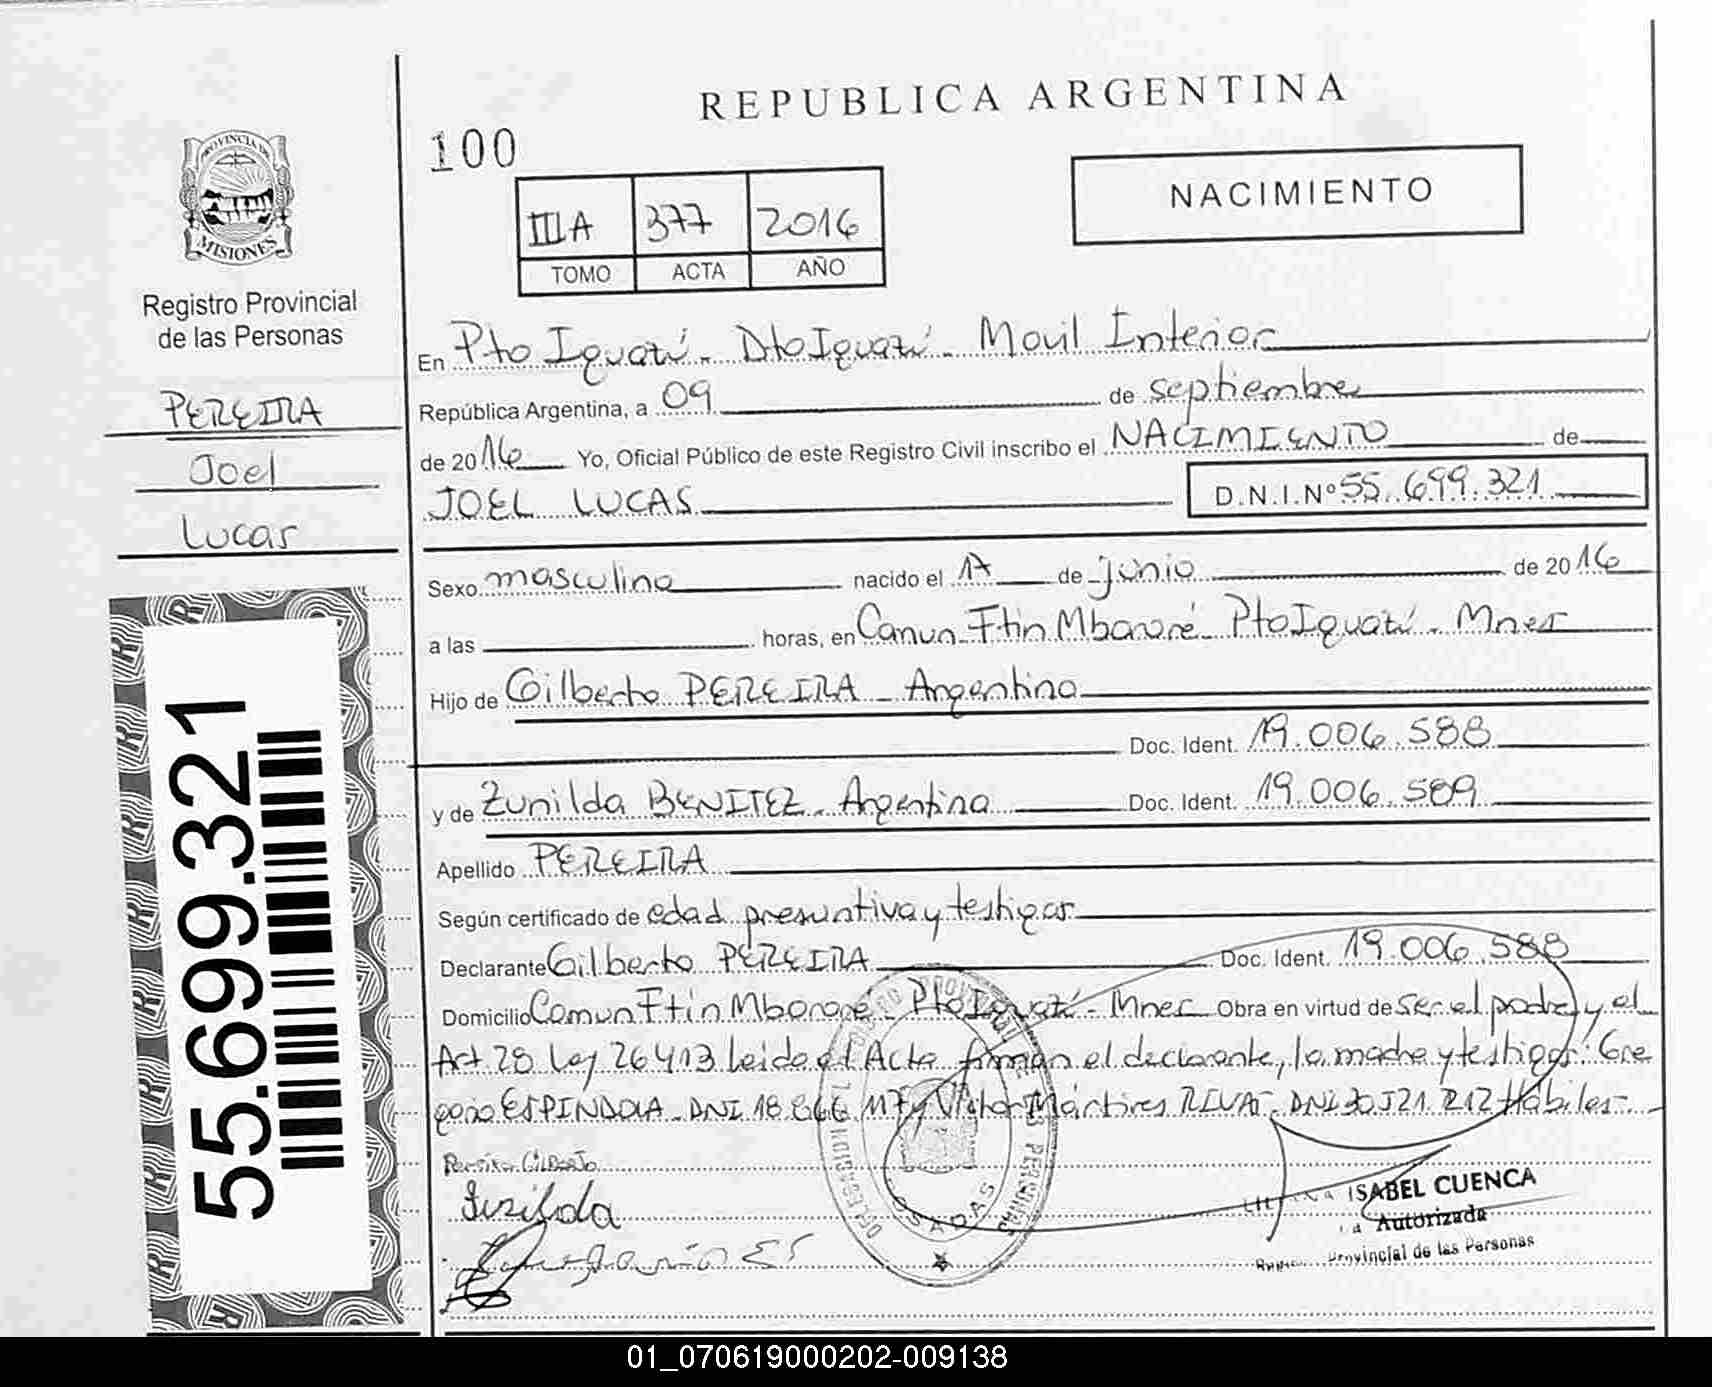 REPUBLICA ARGENTINA
100
NACIMIENTO
IIIA 377 2016
TOMO ACTA AÑO
PROVINCIA DE
MISIONES
Registro Provincial
de las Personas
PEREIRA
Joel
Lucas
55.699.321
En Pto Iguazú - Dto Iguazú - Movil Interior
República Argentina, a 09 de septiembre
de 2016 Yo, Oficial Público de este Registro Civil inscribo el NACIMIENTO de
JOEL LUCAS D.N.I.Nº 55.699.321
Sexo masculino nacido el 17 de junio de 2016
a las horas, en Comun Ftin Mbororé - Pto Iguazú - Mnes
Hijo de Gilberto PEREIRA - Argentino
Doc. Ident. 19.006.588
y de Zunilda BENITEZ - Argentina Doc. Ident. 19.006.589
Apellido PEREIRA
Según certificado de edad presuntiva y testigos
Declarante Gilberto PEREIRA Doc. Ident. 19.006.588
Domicilio Comun Ftin Mbororé - Pto Iguazú - Mnes Obra en virtud de ser el padre y el
Art 28 Ley 26413 leida el Acta firman el declarante, la madre y testigos: Gre
gorio ESPINDOLA - DNI 18.866.117 y Victor Mártires RIVAS, DNI 30.521.212 Hábiles
Pereira Gilberto
Zunilda
ISABEL CUENCA
Autorizada
Provincial de las Personas
POSADAS
01_070619000202-009138